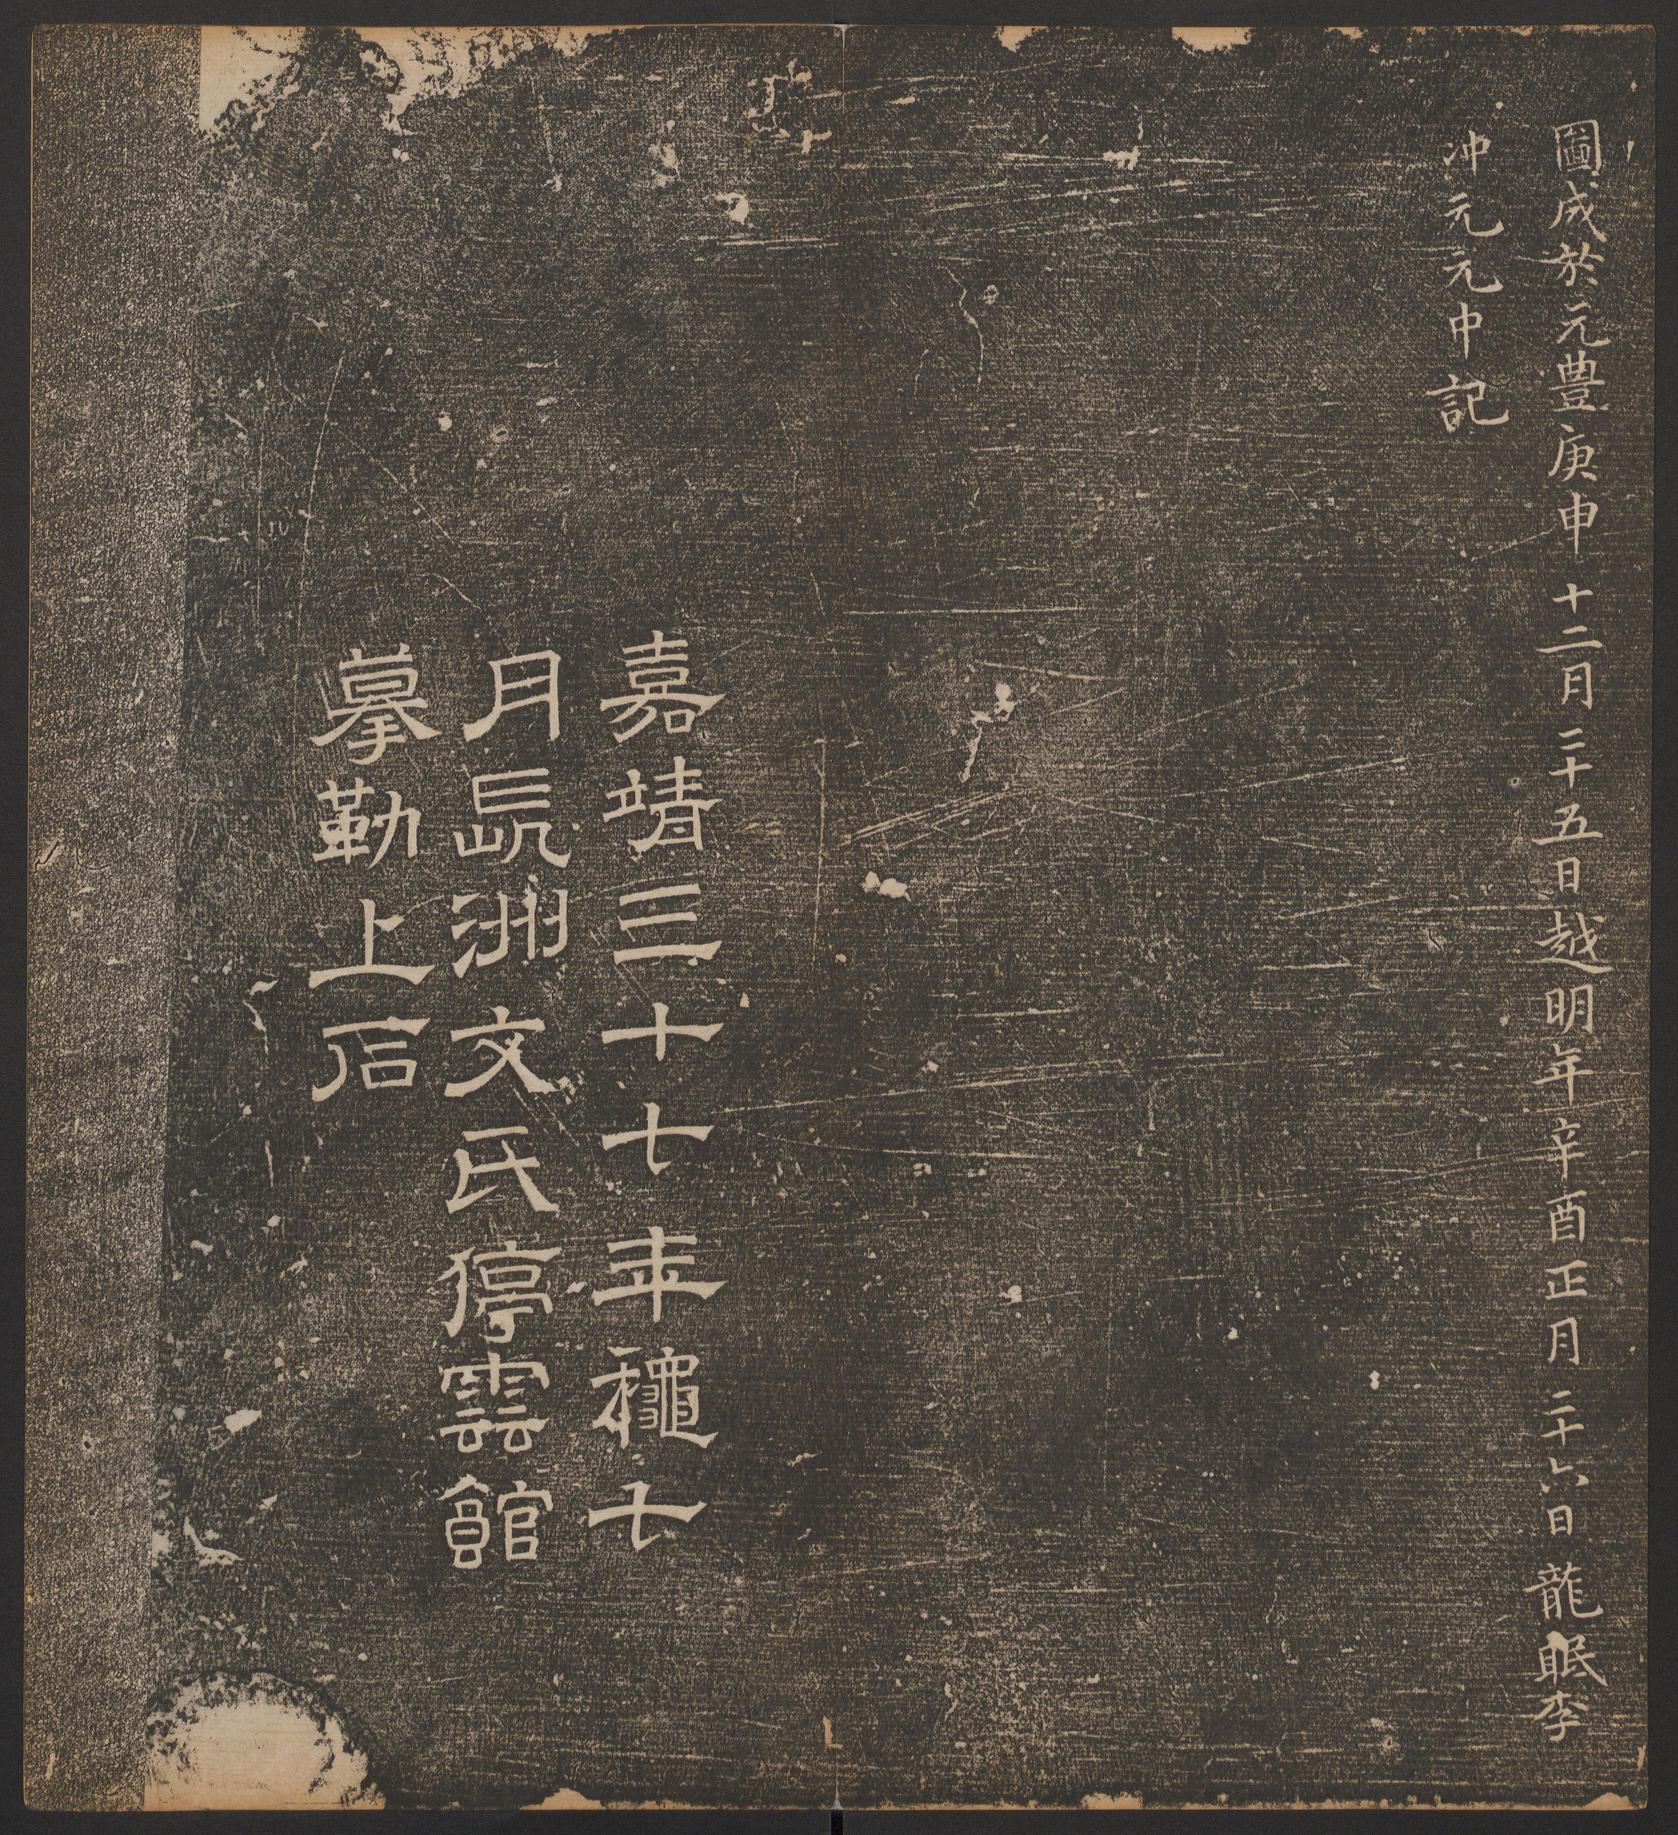 圖成於元豐庚申十二月二十五日越明年辛酉正月二十六日龍眠李
冲元元中記
嘉靖三十七年龝七
月長洲文氏停雲館
摹勒上石